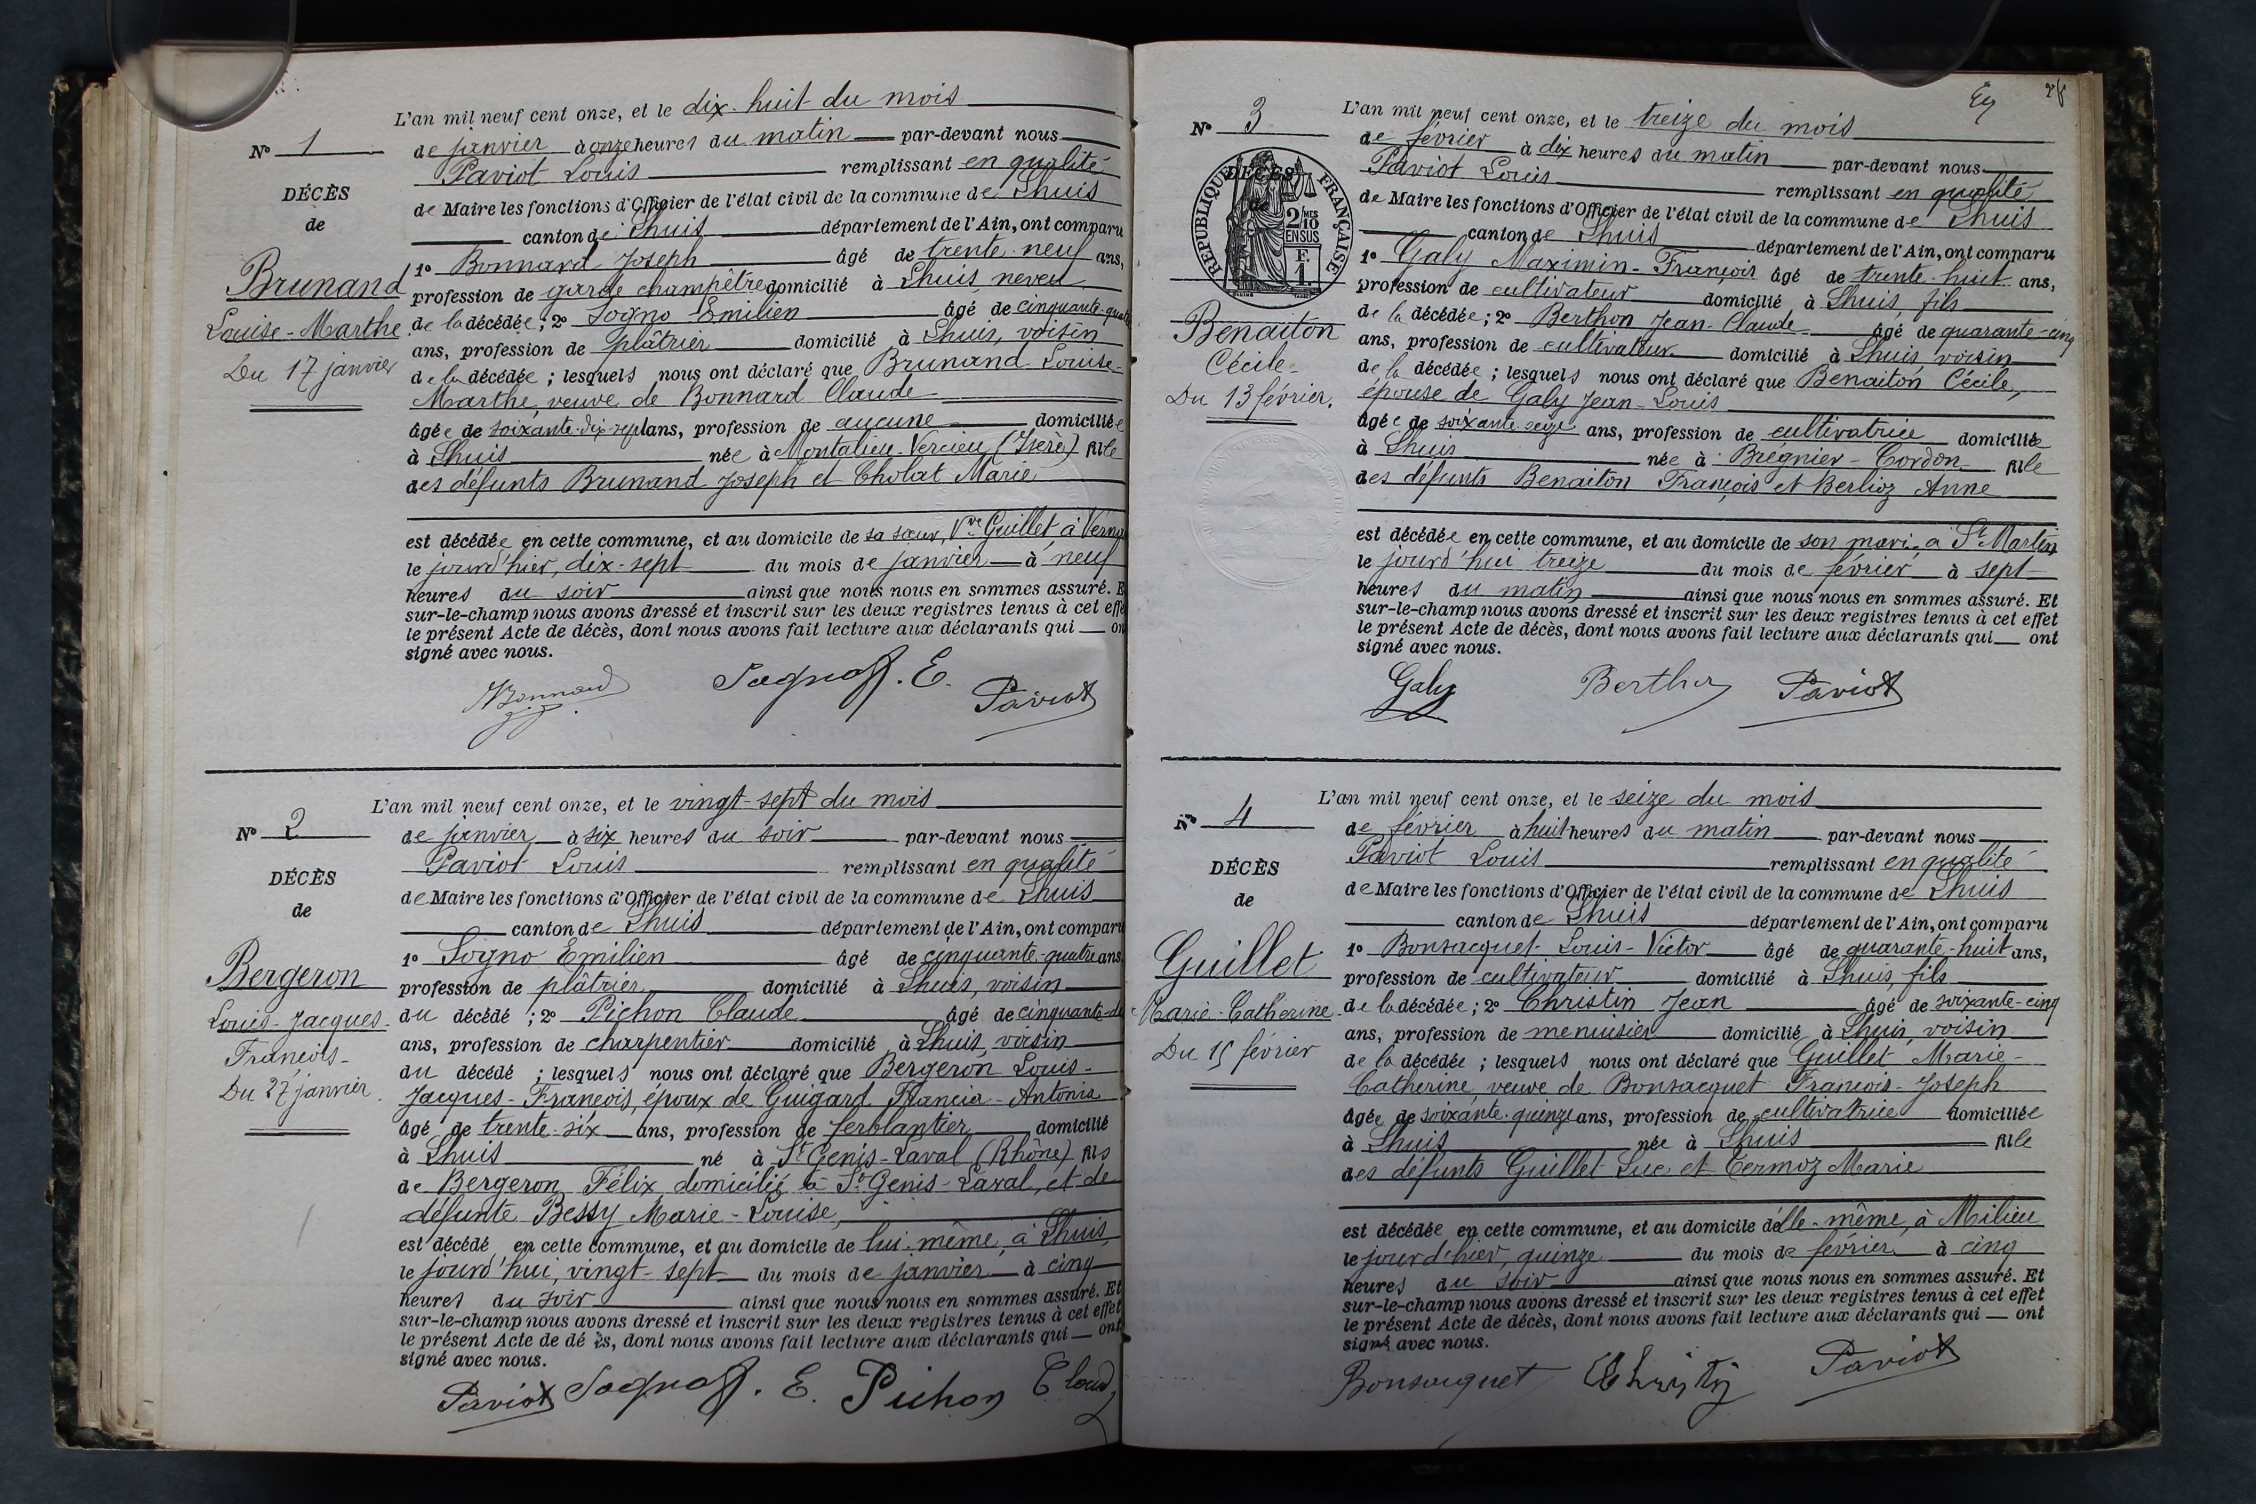 L'an mil neuf cent onze, et le dix-huit du mois
N° 1
de janvier à onze heures du matin par-devant nous
Paviot Louis remplissant en qualité
DÉCÈS
de Maire les fonctions d'Officier de l'état civil de la commune de Lhuis
de
canton de Lhuis département de l'Ain, ont comparu
1° Bonnard Joseph âgé de trente-neuf ans,
Brunand
profession de garde champêtre domicilié à Lhuis neveu
Louise-Marthe
de la décédée; 2° Sogno Emilien âgé de cinquante-quatre
ans, profession de plâtrier domicilié à Lhuis, voisin
Du 17 janvier
de la décédée; lesquels nous ont déclaré que Brunand Louise-
Marthe, veuve de Bonnard Claude
âgée de soixante-dix-sept ans, profession de aucune domiciliée
à Lhuis née à Montalieu-Vercieu (Isère) fille
des défunts Brunand Joseph et Cholat Marie
est décédée en cette commune, et au domicile de sa sœur, Vve Guillet, à
le jourd'hier, dix-sept du mois de janvier à neuf
heures du soir ainsi que nous nous en sommes assuré. E
sur-le-champ nous avons dressé et inscrit sur les deux registres tenus à cet effe
le présent Acte de décès, dont nous avons fait lecture aux déclarants qui on
signé avec nous.
JBonnard Sogno E. Paviot
L'an mil neuf cent onze, et le vingt-sept du mois
N° 2
de janvier à six heures du soir par-devant nous
Paviot Louis remplissant en qualité
DÉCÈS
de Maire les fonctions d'Officier de l'état civil de la commune de Lhuis
de
canton de Lhuis département de l'Ain, ont comparu
1° Sogno Emilien âgé de cinquante-quatre ans,
Bergeron
profession de plâtrier domicilié à Lhuis, voisin
Louis-Jacques-
du décédé; 2° Pichon Claude âgé de cinquante-
François-
ans, profession de charpentier domicilié à Lhuis, voisin
du décédé; lesquels nous ont déclaré que Bergeron Louis-
Du 27 janvier.
Jacques-François, époux de Guigard Francia-Antonia
âgé de trente-six ans, profession de ferblantier domicilié
à Lhuis né à St Genis-Laval (Rhône) fils
de Bergeron Félix domicilié à St Genis-Laval, et de
défunte Bessy Marie-Louise,
est décédé en cette commune, et au domicile de lui-même, à Lhuis,
le jourd'hui, vingt-sept du mois de janvier à cinq
heures du soir ainsi que nous nous en sommes assuré. Et
sur-le-champ nous avons dressé et inscrit sur les deux registres tenus à cet effet
le présent Acte de dé ès, dont nous avons fait lecture aux déclarants qui ont
signé avec nous.
Paviot Sogno E. Pichon Claud
L'an mil neuf cent onze, et le treize du mois
N° 3
de février à dix heures du matin par-devant nous
Paviot Louis remplissant en qualité
DÉCÈS
RÉPUBLIQUE FRANÇAISE
2/10 MES EN SUS
F. 1.
de Maire les fonctions d'Officier de l'état civil de la commune de Lhuis
canton de Lhuis département de l'Ain, ont comparu
1° Galy Maximin-François âgé de trente-huit ans,
profession de cultivateur domicilié à Lhuis, fils
Benaiton
de la décédée; 2° Berthon Jean-Claude âgé de quarante-cinq
Cécile-
ans, profession de cultivateur domicilié à Lhuis, voisin
de la décédée; lesquels nous ont déclaré que Benaiton Cécile,
Du 13 février.
épouse de Galy Jean-Louis
âgée de soixante-seize ans, profession de cultivatrice domiciliée
à Lhuis née à Brégnier-Cordon fille
des défunts Benaiton François et Berlioz Anne
est décédée en cette commune, et au domicile de son mari, à St Martin
le jourd'hui treize du mois de février à sept
heures du matin ainsi que nous nous en sommes assuré. Et
sur-le-champ nous avons dressé et inscrit sur les deux registres tenus à cet effet
le présent Acte de décès, dont nous avons fait lecture aux déclarants qui ont
signé avec nous.
Galy Berthon Paviot
L'an mil neuf cent onze, et le seize du mois
N° 4
de février à huit heures du matin par-devant nous
Paviot Louis remplissant en qualité
DÉCÈS
de Maire les fonctions d'Officier de l'état civil de la commune de Lhuis
de
canton de Lhuis département de l'Ain, ont comparu
1° Bonsacquet Louis-Victor âgé de quarante-huit ans,
Guillet
profession de cultivateur domicilié à Lhuis, fils
Marie-Catherine
de la décédée; 2° Christin Jean âgé de soixante-cinq
ans, profession de menuisier domicilié à Lhuis, voisin
Du 15 février
de la décédée; lesquels nous ont déclaré que Guillet Marie-
Catherine, veuve de Bonsacquet François-Joseph
âgée de soixante-quinze ans, profession de cultivatrice domiciliée
à Lhuis née à Lhuis fille
des défunts Guillet Luc et Termoz Marie
est décédée en cette commune, et au domicile d'elle-même, à Milieu
le jourd'hier, quinze du mois de février à cinq
heures du soir ainsi que nous nous en sommes assuré. Et
sur-le-champ nous avons dressé et inscrit sur les deux registres tenus à cet effet
le présent Acte de décès, dont nous avons fait lecture aux déclarants qui ont
signé avec nous.
Bonsacquet Christin Paviot